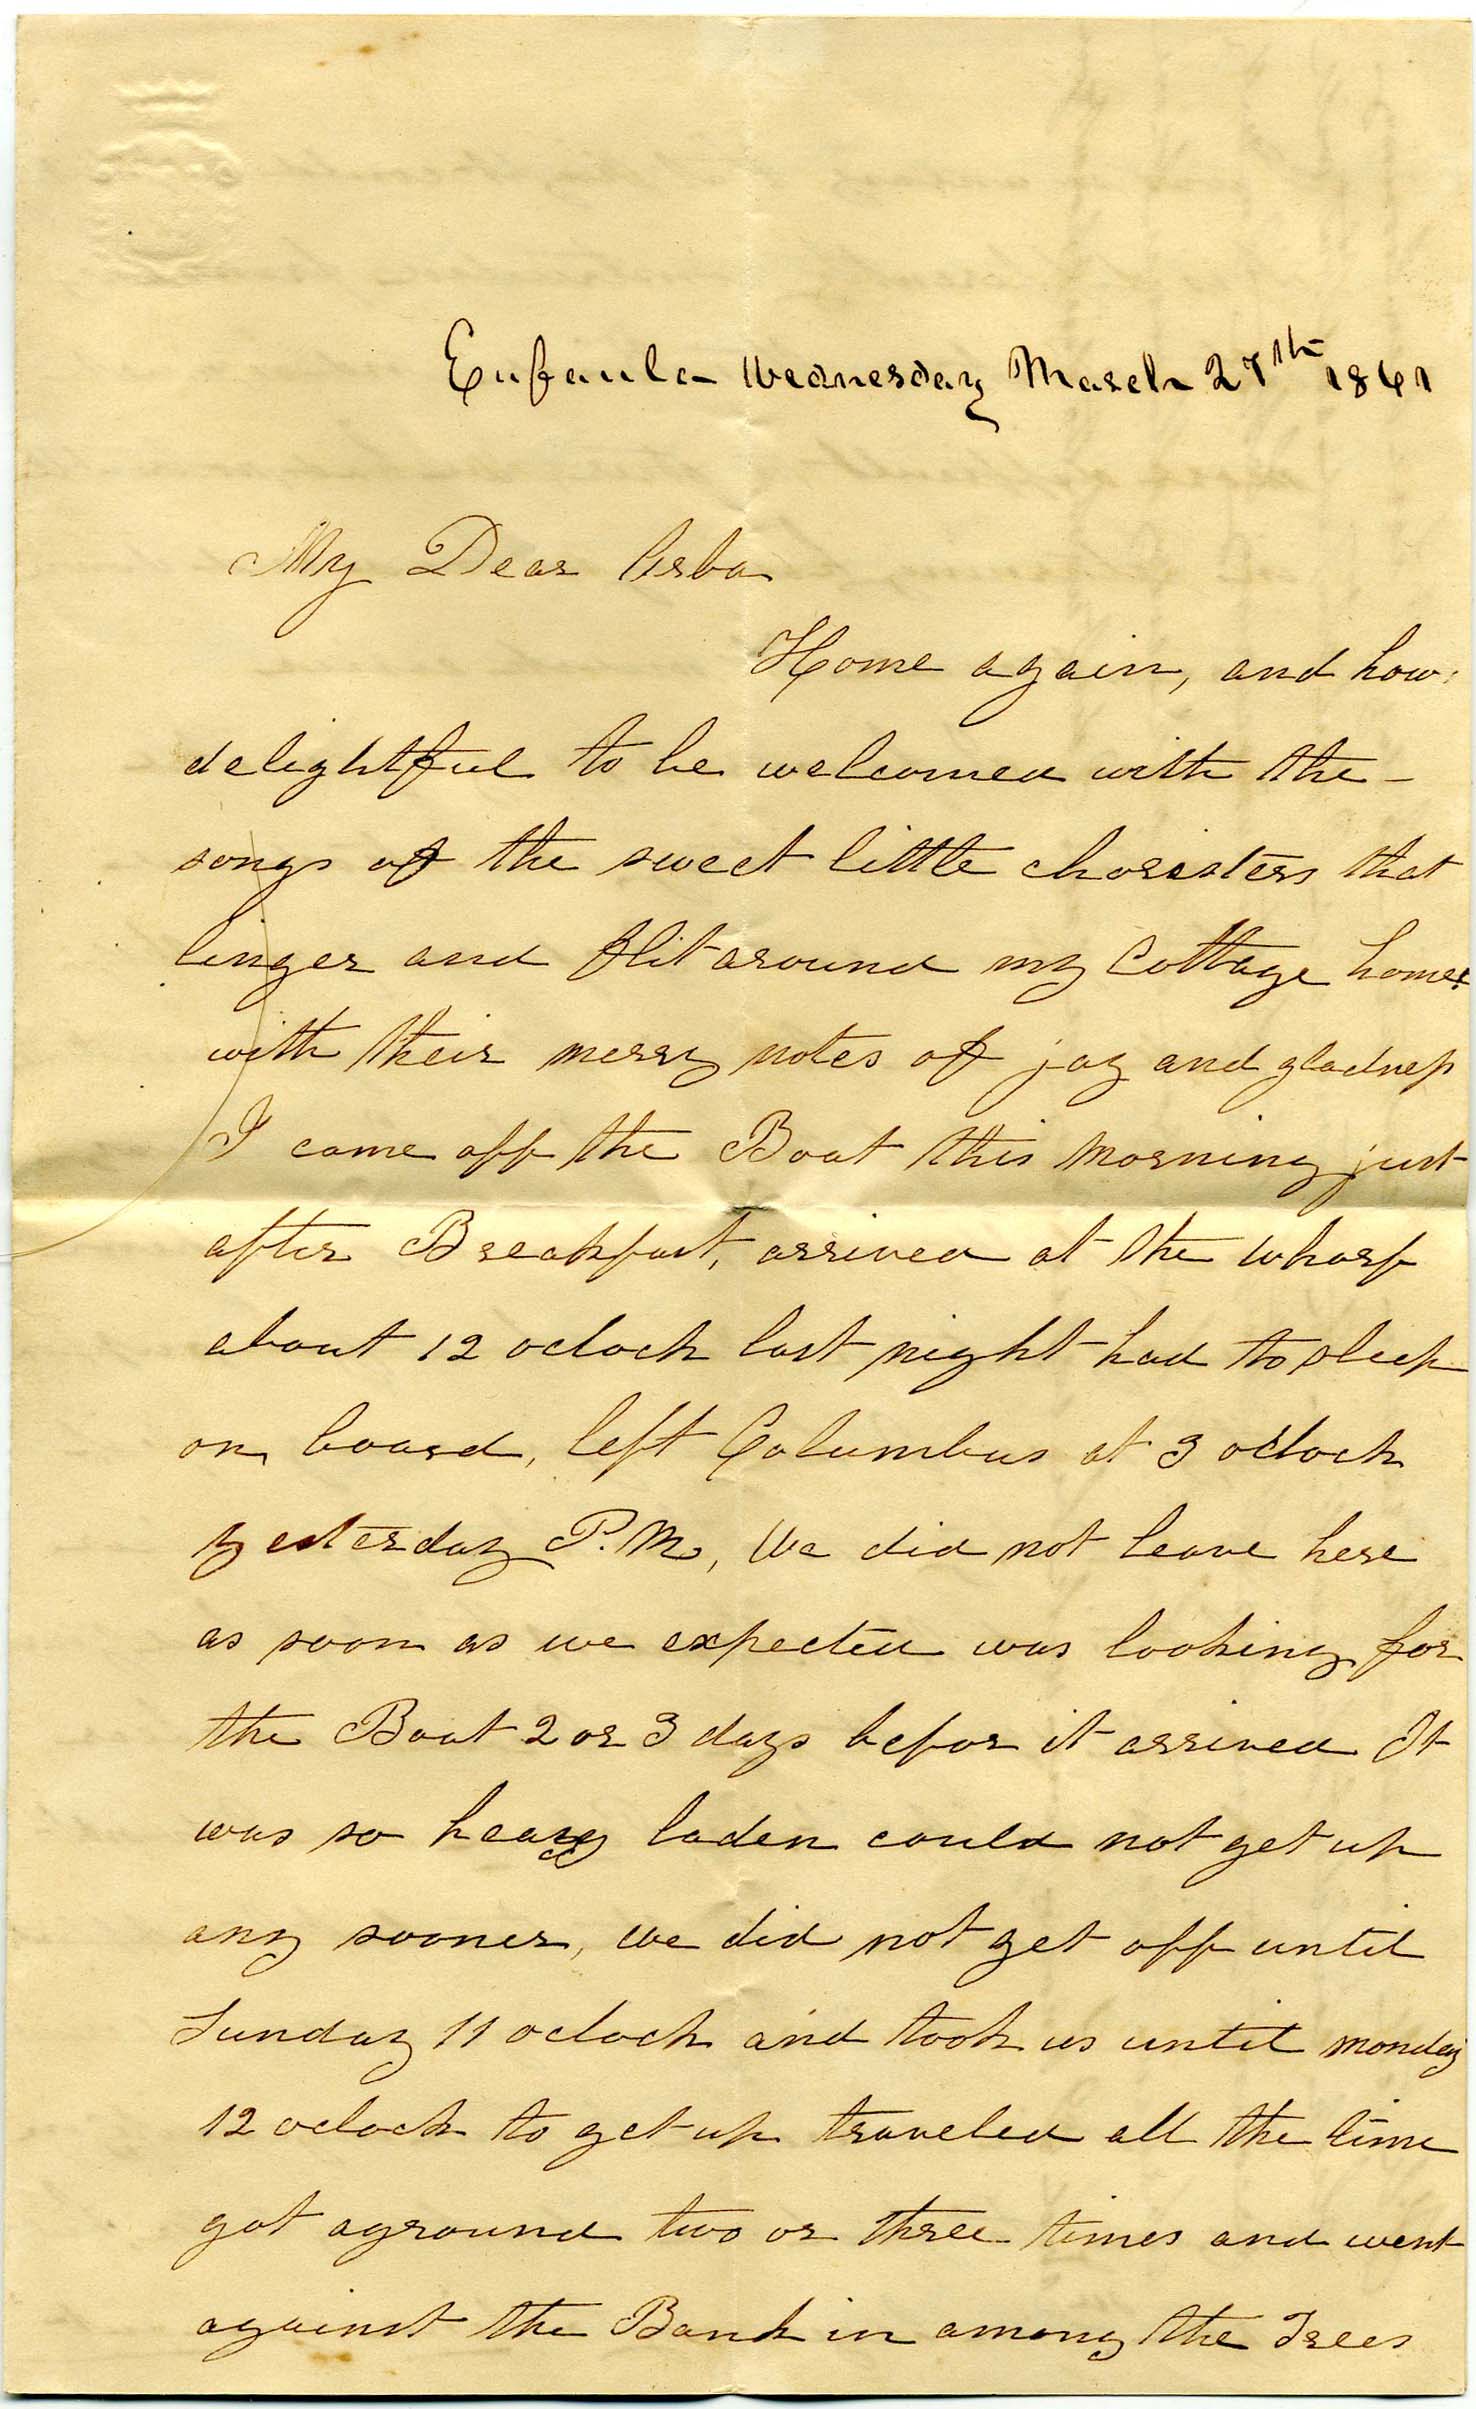 Eufaula Wednesday March 27th 1861
My Dear Arba
Home again, and how
delightful to be welcomed with the
songs of the sweet little choristers that
linger and flit around my Cottage home
with their merry notes of joy and gladness
I came off the Boat this morning just
after Breakfast, arrived at the wharf
about 12 oclock last night had to sleep
on board, left Columbus at 3 oclock
yesterday P.M, We did not leave here
as soon as we expected was looking for
the Boat 2 or 3 days befor it arrived It
was so heavy laden could not get up
any sooner, we did not get off until
Sunday 11 oclock and took us until monday
12 oclock to get up traveled all the time
got aground two or three times and went
against the Bank in among the Trees